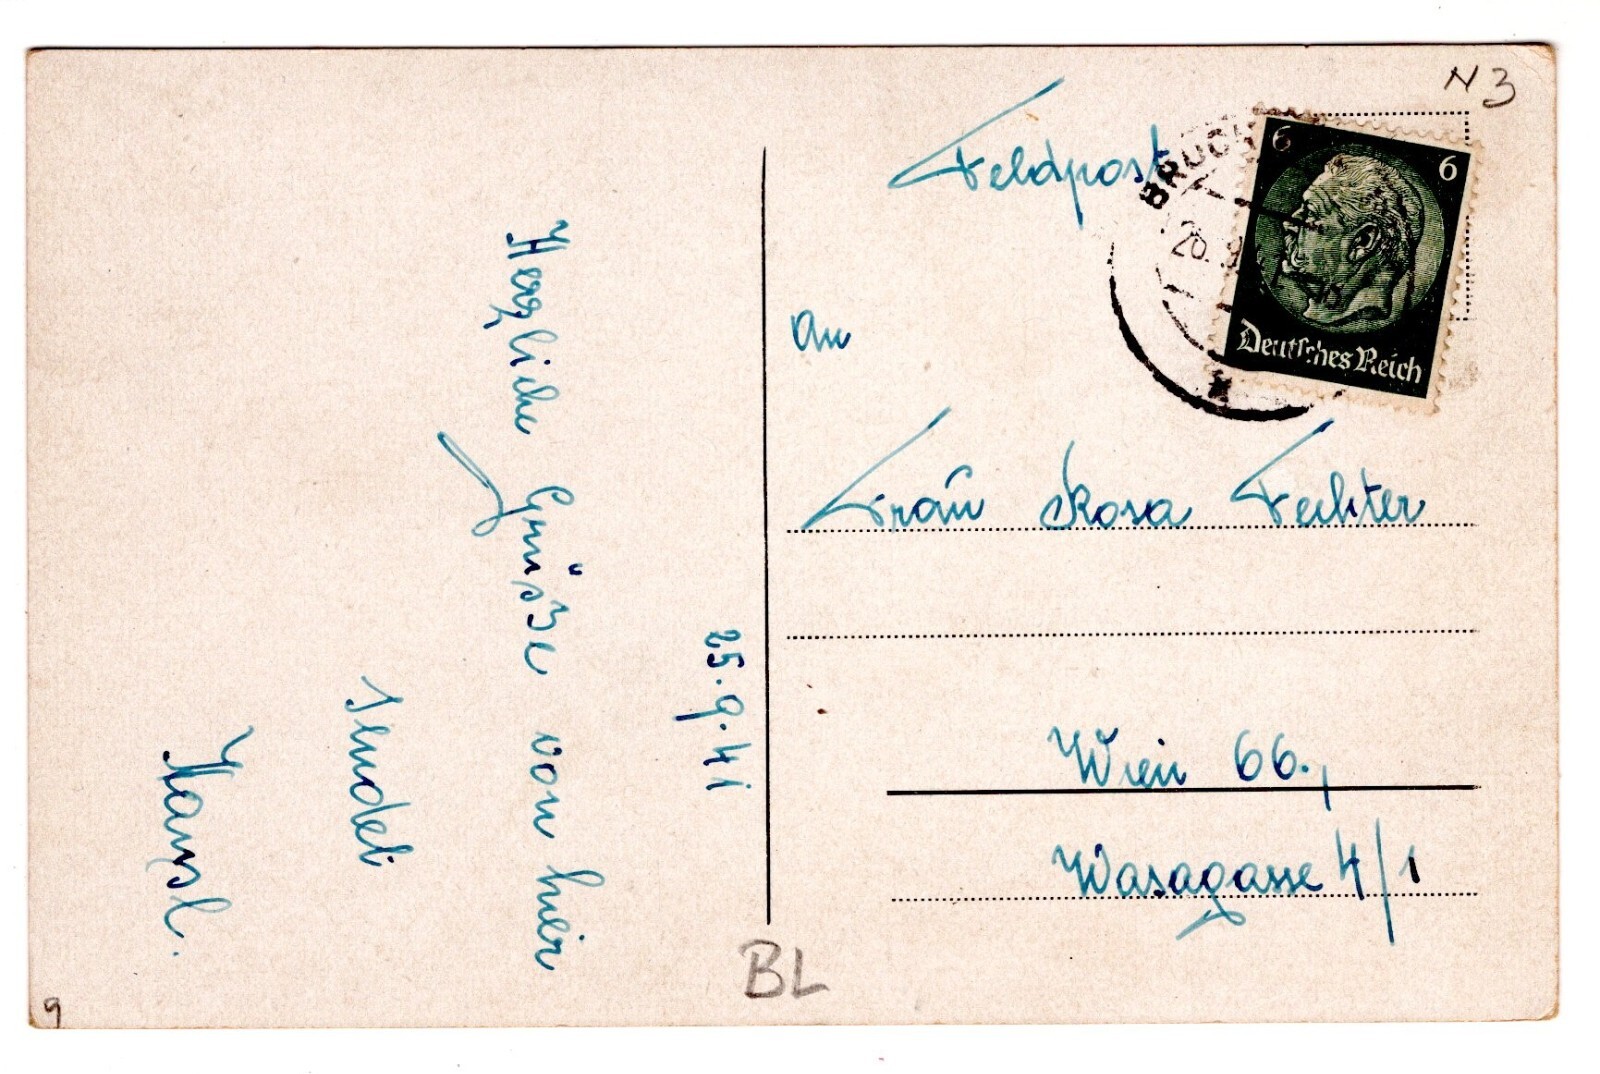 25.9.41
Herzliche Grüsse von hier
sendet
Hansl.
Feldpost
An
Frau Rosa Fechter
Wien 66.,
Wasagasse 4/1
N3
BRUCK
20. 9
6 6
Deutsches Reich
BL
9